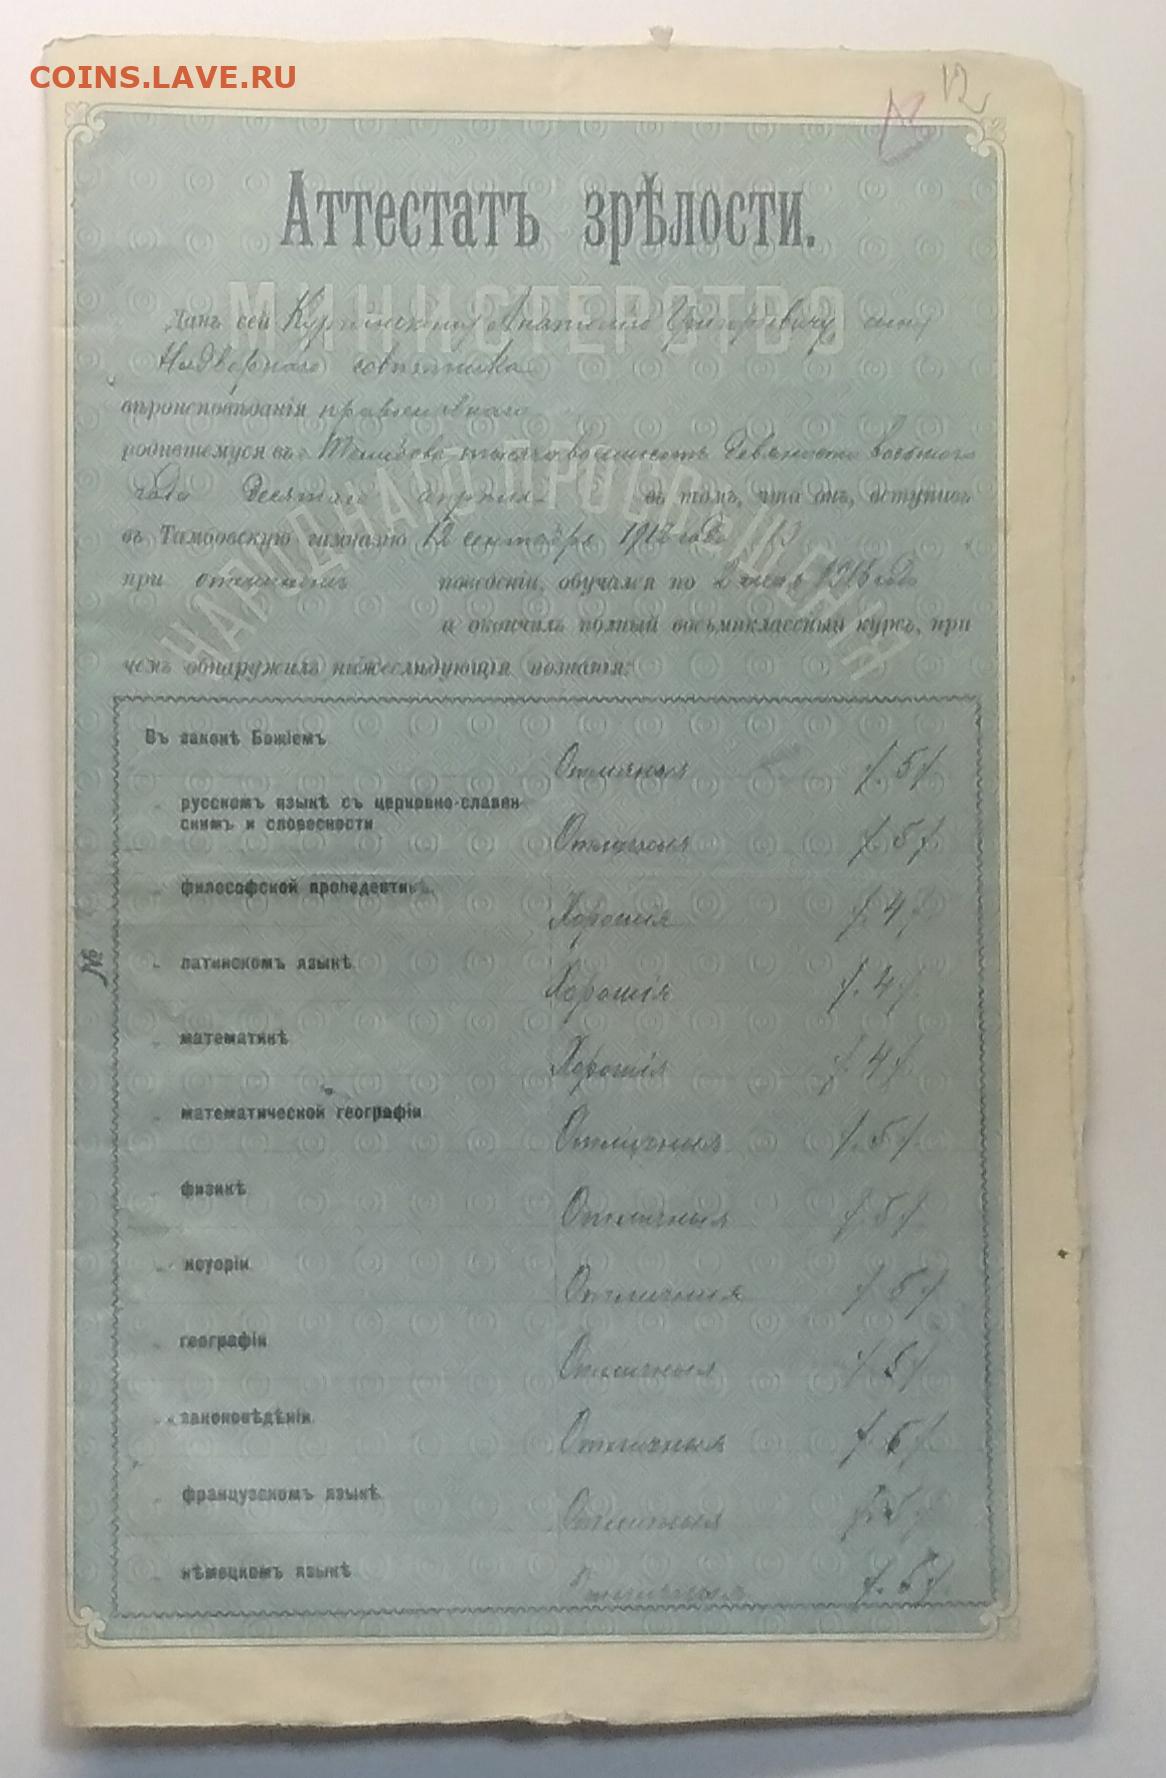 COINS.LAVE.RU
12
Аттестатъ зрѣлости.
МИНИСТЕРСТВО
НАРОДНАГО ПРОСВѢЩЕНІЯ
Данъ сей Анатолію сыну
Надворнаго совѣтника
вѣроисповѣданія православнаго
родившемуся въ Тамбовѣ тысяча восемьсотъ девяносто восьмого
года десятаго апрѣля въ томъ, что онъ, вступивъ
въ Тамбовскую гимназію 12 сентября 1912 года
при отличномъ поведеніи, обучался по 2 1916 года
и окончилъ полный восьмиклассный курсъ, при
чемъ обнаружилъ нижеслѣдующія познанія:
Въ законѣ Божіемъ Отличныя /. 5 /.
„ русскомъ языкѣ съ церковно-славян-
скимъ и словесности Отличныя /. 5 /.
„ философской пропедевтикѣ. Хорошія /. 4 /.
„ латинскомъ языкѣ Хорошія /. 4 /.
„ математикѣ Хорошія /. 4 /.
„ математической географіи Отличныя /. 5 /.
„ физикѣ Отличныя /. 5 /.
„ исторіи Отличныя /. 5 /.
„ географіи Отличныя /. 5 /.
„ законовѣдѣніи Отличныя /. 5 /.
„ французскомъ языкѣ Отличныя /. 5 /.
„ нѣмецкомъ языкѣ Отличныя /. 5 /.
№